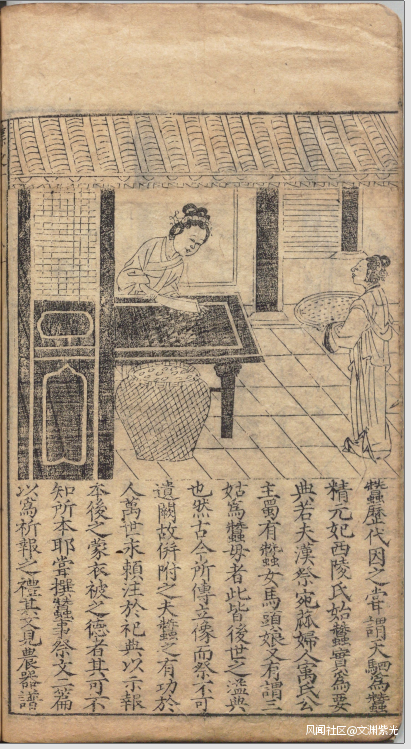 蠶歷代因之嘗謂天駟爲蠶
精元妃西陵氏始蠶實爲要
典若夫漢祭宛窳婦人寓氏公
主蜀有蠶女馬頭娘又有謂三
姑爲蠶母者此皆後世之溢典
也然古今所傳立像而祭不可
遺闕故併附之夫蠶之有功於
人萬世永賴注於祀典以示報
本後之蒙衣被之德者其可不
知所本耶嘗撰蠶事祭文一篇
以寓祈報之禮其文見農器譜
风闻社区@文洲紫光